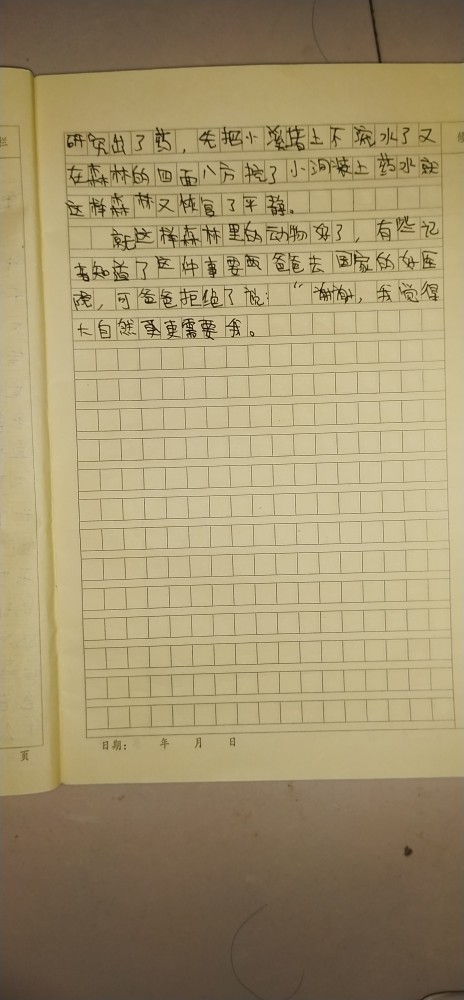 研究出了药，先把小溪堵上不流水了又
在森林的四面八方挖了小洞装上药水就
这样森林又恢复了平静。
就这样森林里的动物好了，有些记
者知道了这件事要要爸爸去国家的好医
院，可爸爸拒绝了说：“谢谢，我觉得
大自然更需要我。
日期： 年 月 日
页